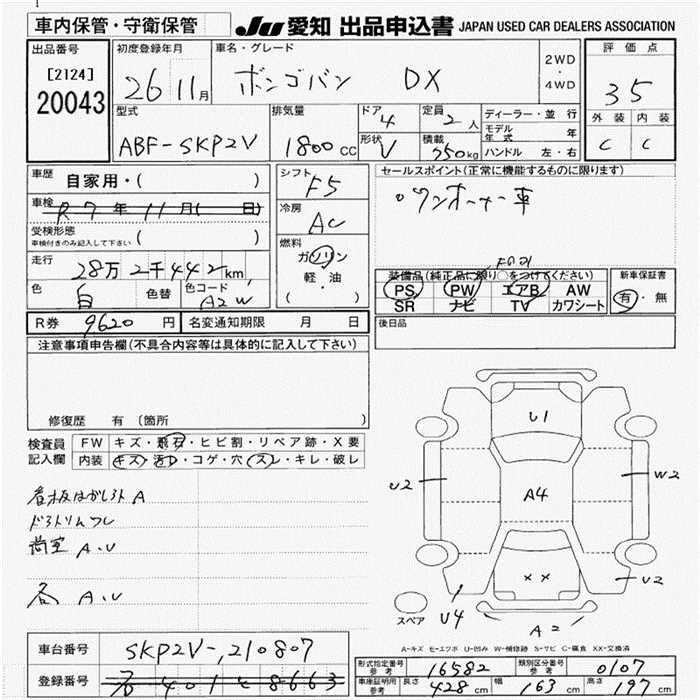 車内保管・守衛保管
JU 愛知 出品申込書 JAPAN USED CAR DEALERS ASSOCIATION
出品番号
[2124]
20043
初度登録年月
26 11月
車名・グレード
ボンゴバン DX
2WD
・
4WD
評価点
35
外装 内装
C C
型式
ABF-SKP2V
排気量
1800 CC
ドア
4
形状
V
定員
2人
積載
750kg
ディーラー・並行
モデル年式 年
ハンドル 左・右
車歴
自家用・( )
車検
R7年11月( 日)
受検形態
車検付きのみ記入して下さい ( )
走行
28万2千442km
色
白
色替
色コード
A2W
シフト
F5
冷房
AC
燃料
ガソリン
軽・油
( )
セールスポイント(正常に機能するものに限ります)
。ワンオーナー車
装備品(純正品に限り○をつけてください)
PS PW エアB AW
SR ナビ TV カワシート
新車保証書
有・無
R券 9620円 名変通知期限 月 日
後日品
注意事項申告欄(不具合内容等は具体的に記入して下さい)
修復歴 有 〔箇所 〕
検査員
記入欄
FW キズ・飛石・ヒビ割・リペア跡・X要
内装 キズ・汚レ・コゲ・穴・スレ・キレ・破レ
看板はがし跡 A
ドアトリムワレ
荷室 A.U
各 A.U
U1
U2
A4
W2
XX
U2
スペア
U4
A2
A-キズ E-エクボ U-凹み W-補修跡 S-サビ C-腐食 XX-交換済
車台番号 SKP2V-210807
登録番号
401 8663
形式指定番号
参考
16582
類別区分番号
参考
0107
車庫証明用
参考
長さ 428cm 幅 163cm 高さ 197cm